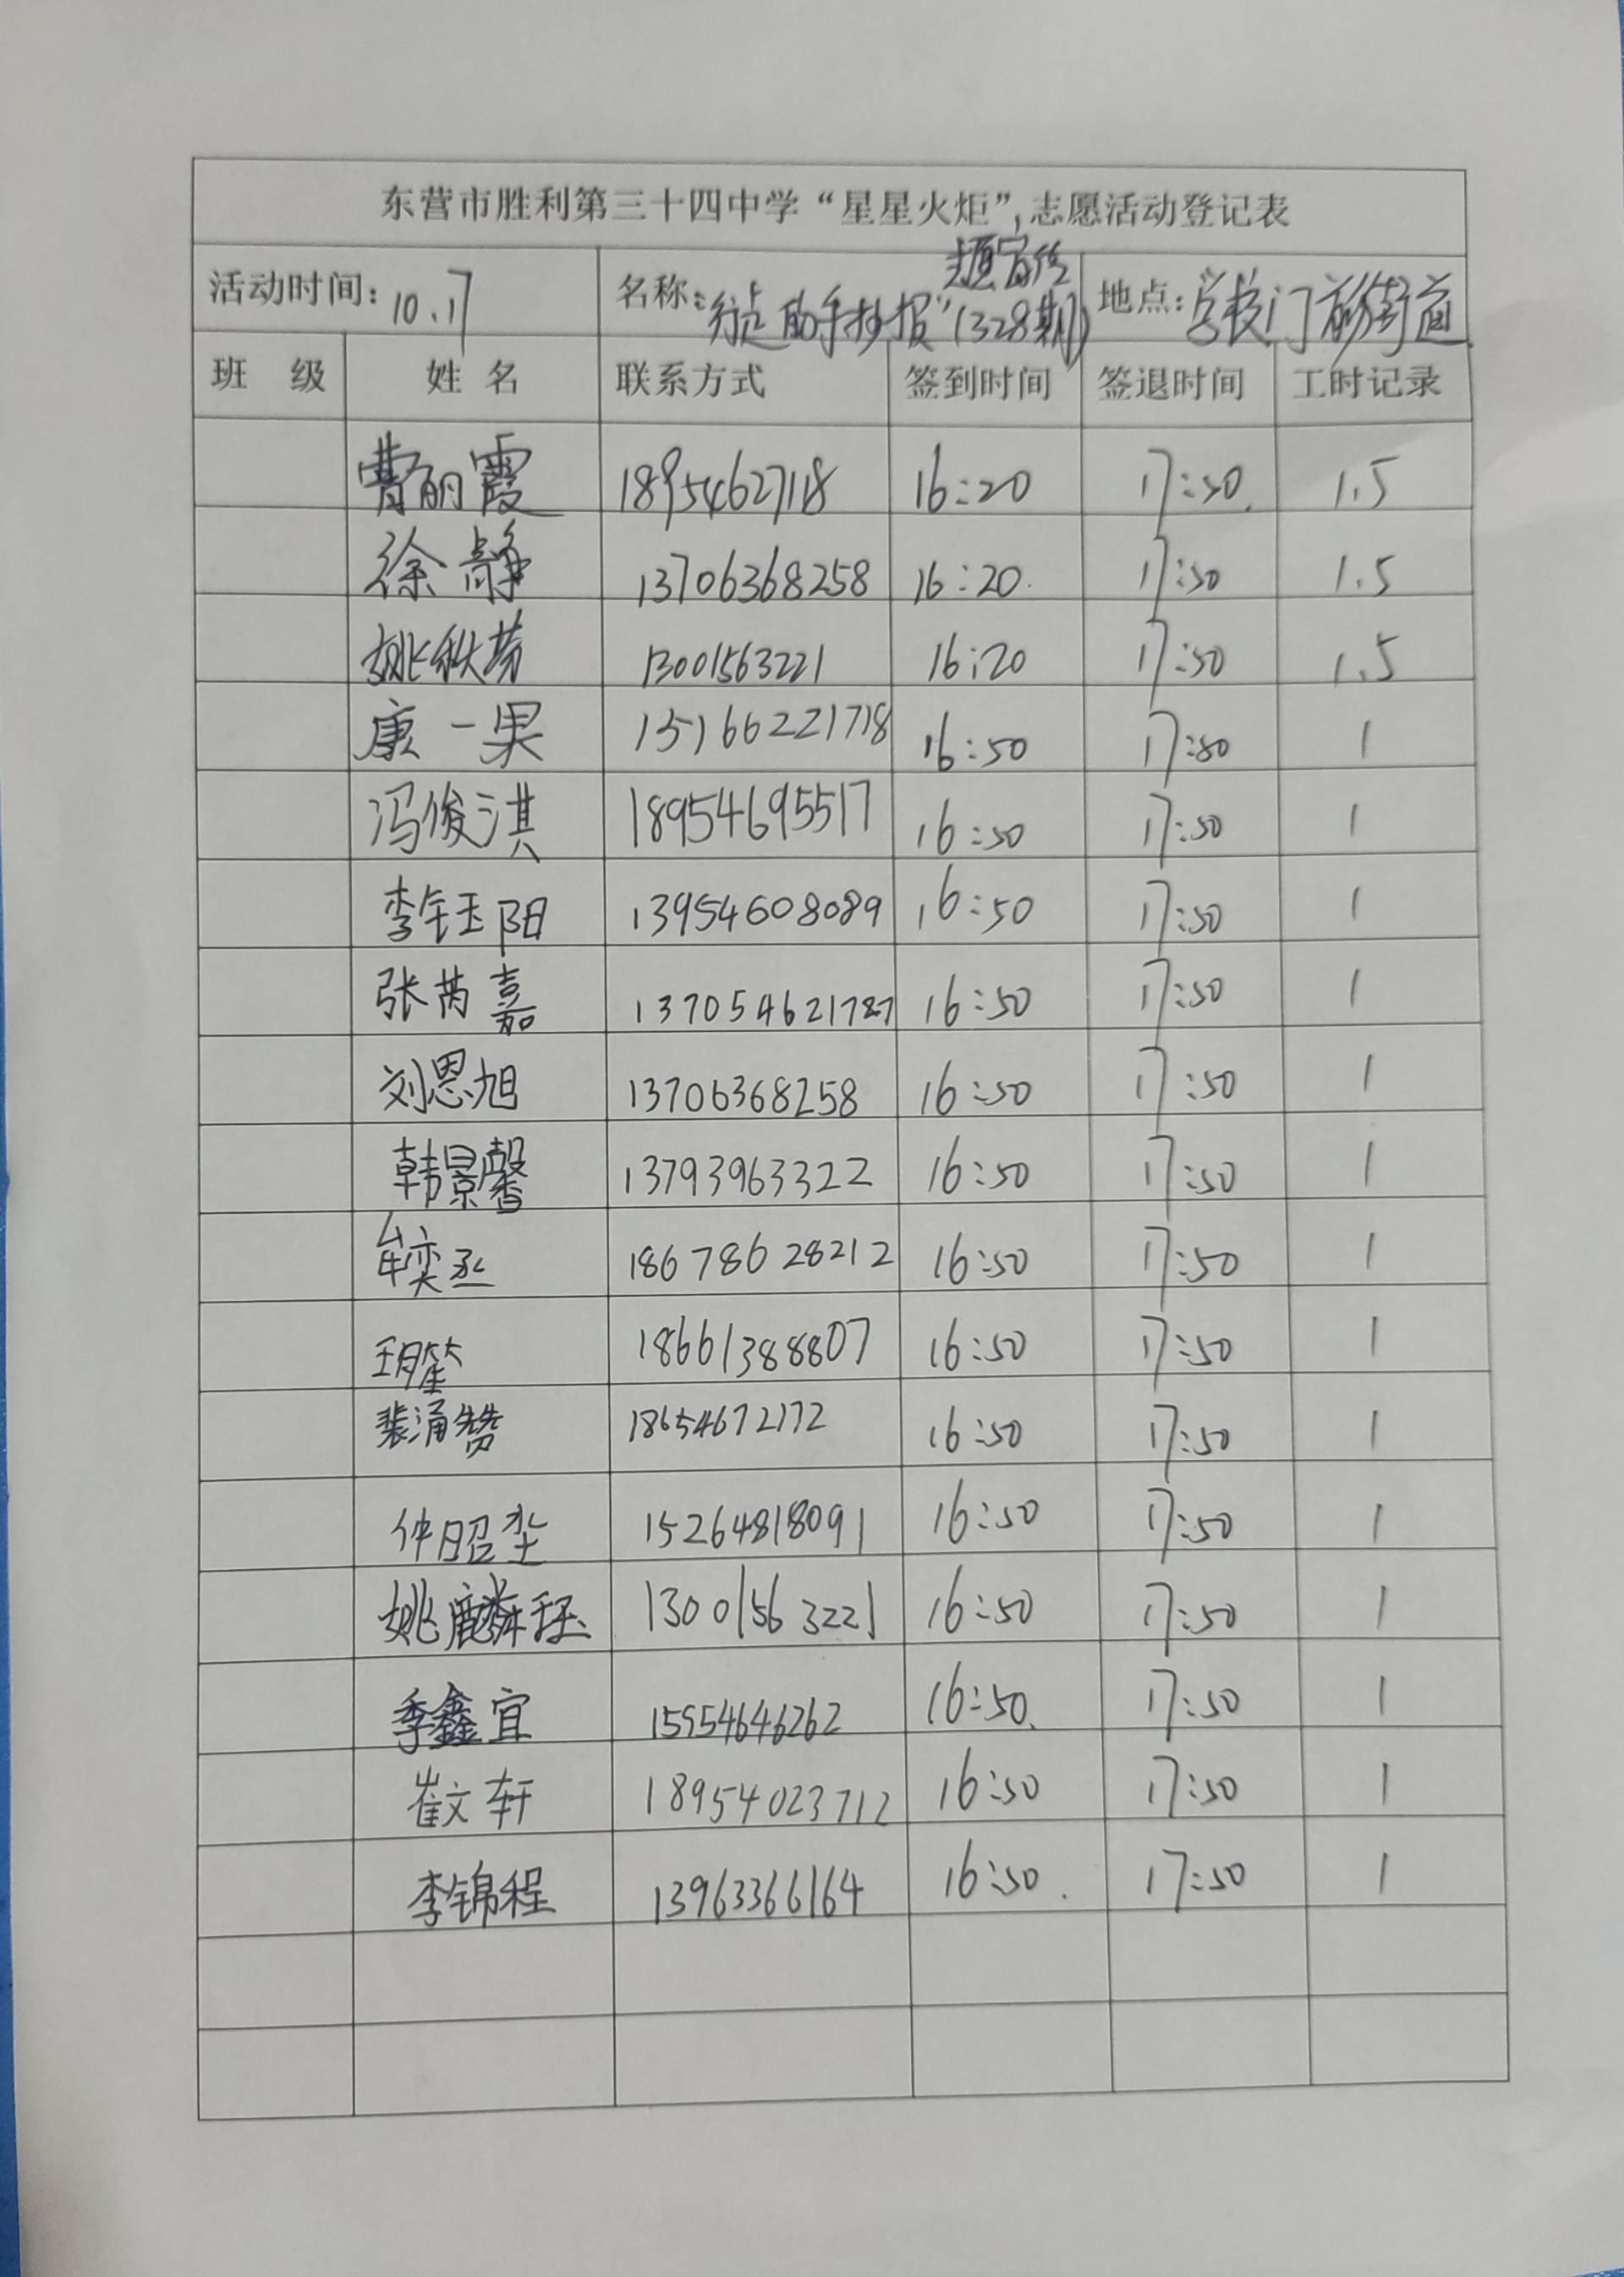 东营市胜利第三十四中学“星星火炬”,志愿活动登记表
活动时间：10.17 名称：“行走的手抄报”主题宣传(328期) 地点：学校门前街道
班 级 姓 名 联系方式 签到时间 签退时间 工时记录
曹丽霞 18954627118 16:20 17:50 1.5
徐静 13706368258 16:20 17:50 1.5
姚秋芳 13001563221 16:20 17:50 1.5
康一果 15166221718 16:50 17:50 1
冯俊淇 18954695517 16:50 17:50 1
李钰阳 13954608089 16:50 17:50 1
张芮嘉 137054621787 16:50 17:50 1
刘恩旭 13706368258 16:50 17:50 1
韩景馨 13793963322 16:50 17:50 1
牟奕丞 18678628212 16:50 17:50 1
18661388807 16:50 17:50 1
裴涌赞 18654672172 16:50 17:50 1
仲昭 15264818091 16:50 17:50 1
姚麟珏 13001563221 16:50 17:50 1
季鑫宜 15954646262 16:50 17:50 1
崔文轩 18954023712 16:50 17:50 1
李锦程 13963366164 16:50 17:50 1